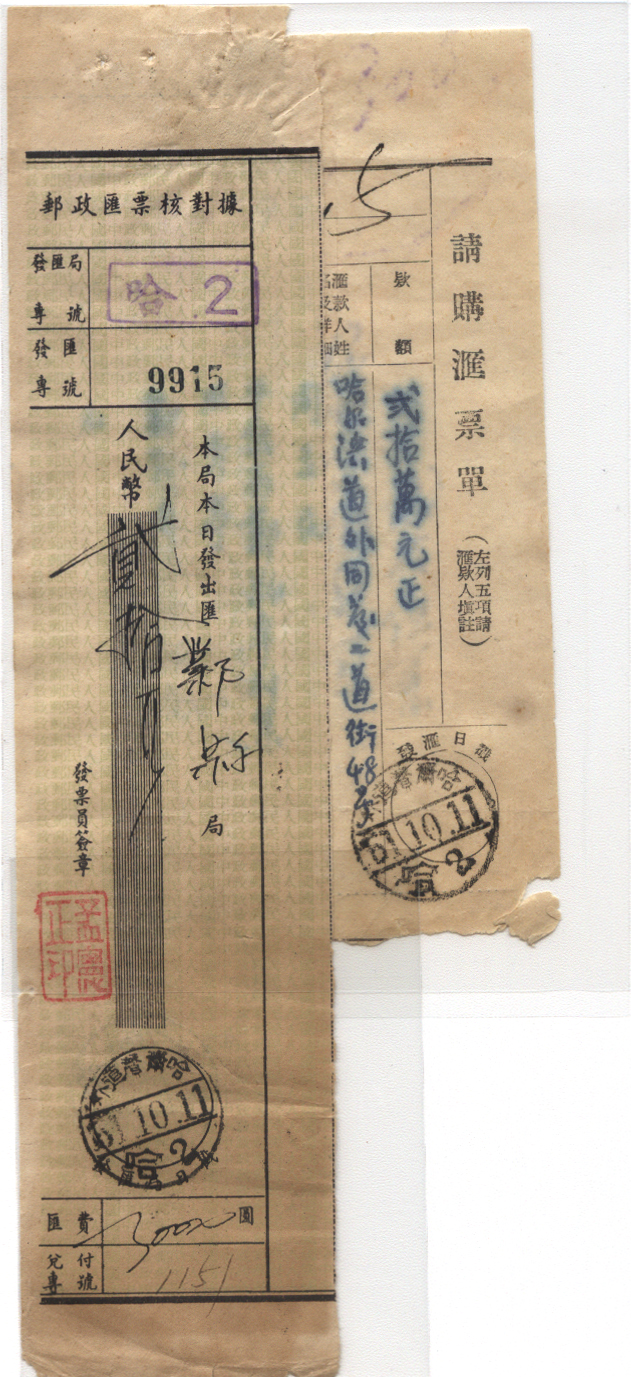 請購滙票單
（左列五項請滙欵人塡註）
欵額
弍拾萬元正
滙欵人姓
哈尔濱道外同義二道街48号
5
發滙日戳
哈爾濱道外
51.10.11
哈2
郵政匯票核對據
發匯局專號
哈2
發匯專號
9915
本局本日發出匯鄴縣局
人民幣
貳拾万
發票員簽章
正印
哈爾濱道外
51.10.11
哈2
匯費
3000
圓
兌付專號
1151